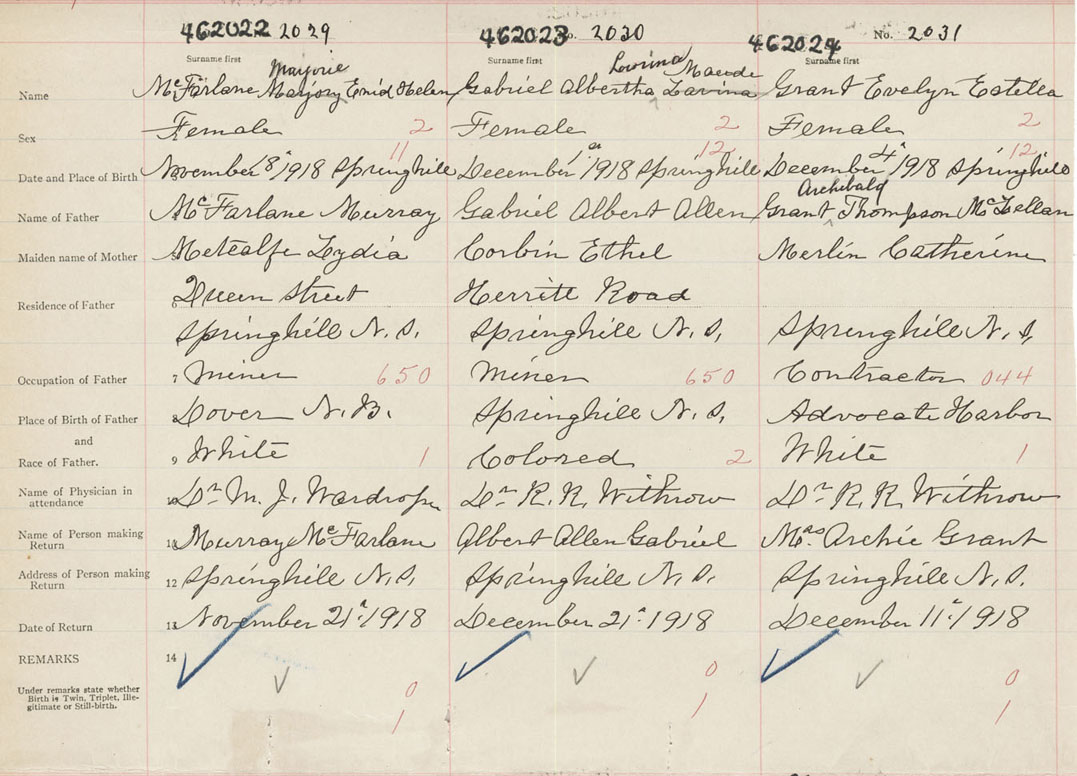 462022 2029 462023 No. 2030 462024 No. 2031
Surname first Surname first Surname first
Marjorie Lovrina Maude
Name McFarlane Marjory Enid Helen Gabriel Albertha Lavina Grant Evelyn Estella
Sex Female 2 Female 2 Female 2
11 12 12
Date and Place of Birth November 18" 1918 Springhill December 1st 1918 Springhill December 4" 1918 Springhill
Archibald
Name of Father McFarlane Murray Gabriel Albert Allen Grant Thompson McLellan
Maiden name of Mother 5 Metcalfe Lydia Corbin Ethel Merlin Catherine
Residence of Father 6 Queen Street Herrite Road
Springhill N.S. Springhill N.S. Springhill N.S.
Occupation of Father 7 Miner 650 Miner 650 Contractor 044
Place of Birth of Father 8 Dover N.B. Springhill N.S. Advocate Harbor
and
Race of Father. 9 White 1 Colored 2 White 1
Name of Physician in
attendance 10 Dr M. J. Wardrope Dr R. R. Withrow Dr R. R. Withrow
Name of Person making
Return 11 Murray McFarlane Albert Allen Gabriel Mrs Archie Grant
Address of Person making
Return 12 Springhill N.S. Springhill N.S. Springhill N.S.
Date of Return 13 November 21" 1918 December 21" 1918 December 11" 1918
REMARKS 14
Under remarks state whether
Birth is Twin, Triplet, Ille-
gitimate or Still-birth.
0 0 0
1 1 1